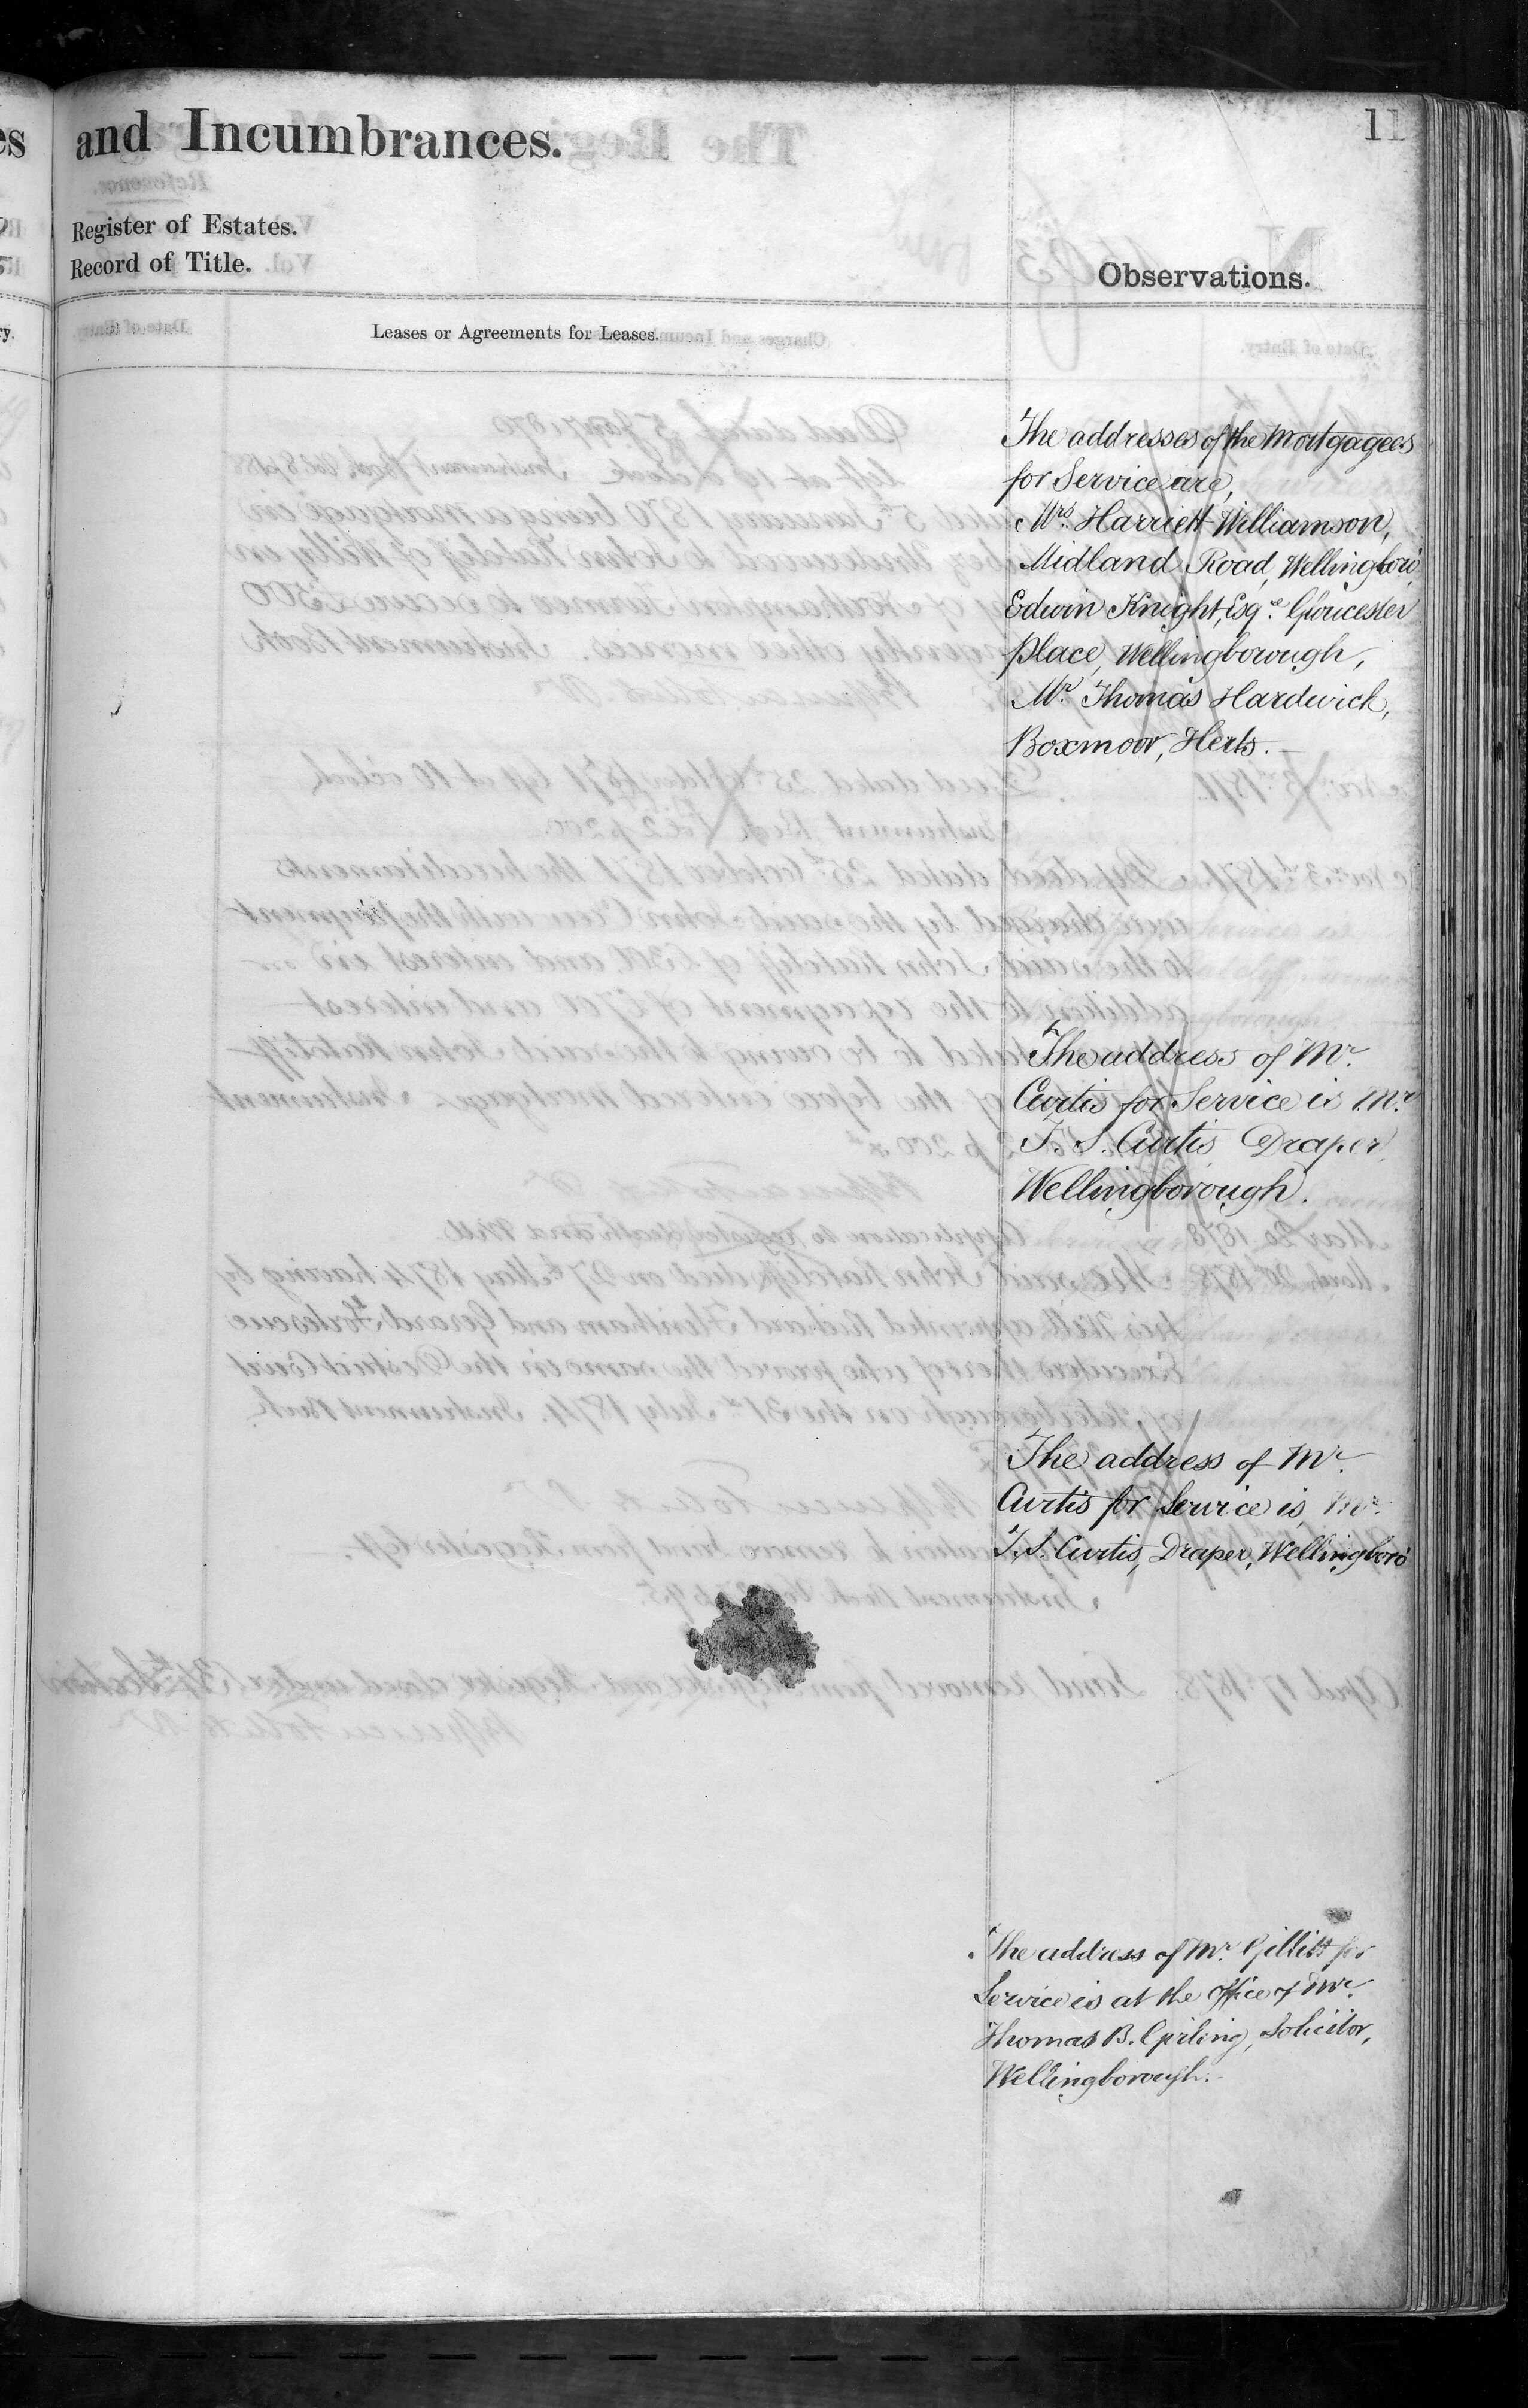 and Incumbrances.
11
Register of Estates.
Record of Title.
Observations.
Leases or Agreements for Leases.
The addresses of the Mortgagees
for Service are,
Mrs. Harriett Williamson,
Midland Road, Wellingboro'
Edwin Knight, Esqre. Gloucester
place, Wellingborough,
Mr. Thomas Hardwick,
Boxmoor, Herts.
The address of Mr.
Curtis for Service is Mr.
T. S. Curtis, Draper,
Wellingborough.
The address of Mr.
Curtis for Service is, Mr.
T. S. Curtis, Draper, Wellingboro'
The address of Mr. Gillitt for
Service is at the office of Mr.
Thomas B. Girling, Solicitor,
Wellingborough.